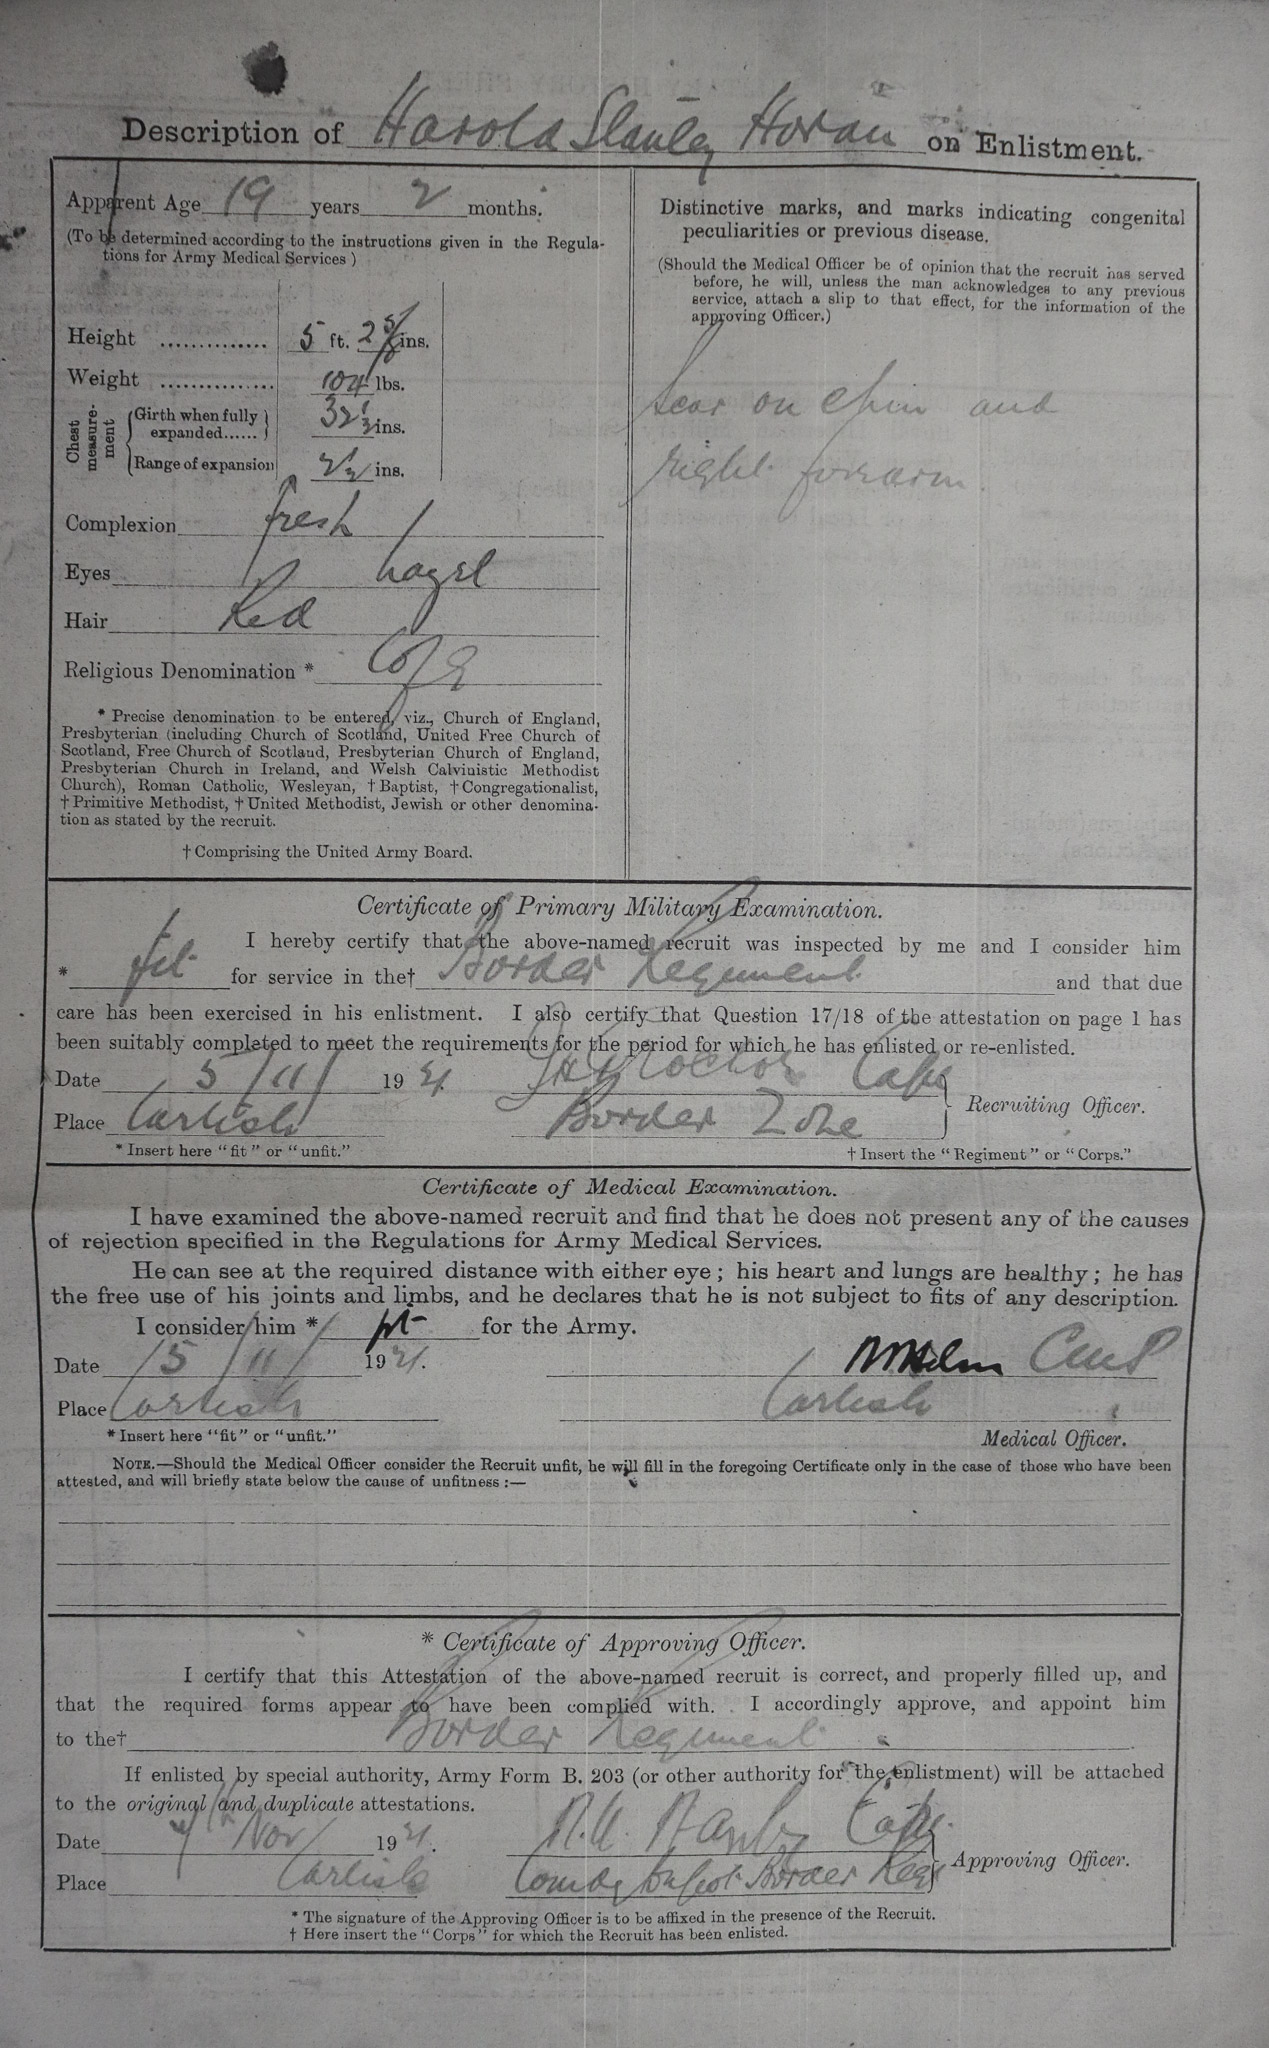 Description of Harold Stanley Horan on Enlistment.
Apparent Age 19 years 2 months.
(To be determined according to the instructions given in the Regula-
tions for Army Medical Services)
Height .............. 5 ft. 2 5/8 ins.
Weight ............... 104 lbs.
Chest measure-ment
Girth when fully
expanded...... 32 1/2 ins.
Range of expansion 2 1/2 ins.
Complexion fresh
Eyes hazel
Hair Red
Religious Denomination * C of E
* Precise denomination to be entered, viz., Church of England,
Presbyterian (including Church of Scotland, United Free Church of
Scotland, Free Church of Scotland, Presbyterian Church of England,
Presbyterian Church in Ireland, and Welsh Calvinistic Methodist
Church), Roman Catholic, Wesleyan, † Baptist, † Congregationalist,
† Primitive Methodist, † United Methodist, Jewish or other denomina-
tion as stated by the recruit.
† Comprising the United Army Board.
Distinctive marks, and marks indicating congenital
peculiarities or previous disease.
(Should the Medical Officer be of opinion that the recruit has served
before, he will, unless the man acknowledges to any previous
service, attach a slip to that effect, for the information of the
approving Officer.)
Scar on Chin and
right forearm.
Certificate of Primary Military Examination.
I hereby certify that the above-named recruit was inspected by me and I consider him
* fit for service in the† Border Regiment and that due
care has been exercised in his enlistment. I also certify that Question 17/18 of the attestation on page 1 has
been suitably completed to meet the requirements for the period for which he has enlisted or re-enlisted.
Date 5/11/ 1921. Capt
Place Carlisle Border Zone Recruiting Officer.
* Insert here "fit" or "unfit." † Insert the "Regiment" or "Corps."
Certificate of Medical Examination.
I have examined the above-named recruit and find that he does not present any of the causes
of rejection specified in the Regulations for Army Medical Services.
He can see at the required distance with either eye; his heart and lungs are healthy; he has
the free use of his joints and limbs, and he declares that he is not subject to fits of any description.
I consider him * fit for the Army.
Date 5/11/ 1921. CMP
Place Carlisle Carlisle
* Insert here "fit" or "unfit." Medical Officer.
NOTE.—Should the Medical Officer consider the Recruit unfit, he will fill in the foregoing Certificate only in the case of those who have been
attested, and will briefly state below the cause of unfitness :—
* Certificate of Approving Officer.
I certify that this Attestation of the above-named recruit is correct, and properly filled up, and
that the required forms appear to have been complied with. I accordingly approve, and appoint him
to the† Border Regiment
If enlisted by special authority, Army Form B. 203 (or other authority for the enlistment) will be attached
to the original and duplicate attestations.
Date 7th Nov 1921. Capt.
Place Carlisle Comdg Depot Border Regt Approving Officer.
* The signature of the Approving Officer is to be affixed in the presence of the Recruit.
† Here insert the "Corps" for which the Recruit has been enlisted.